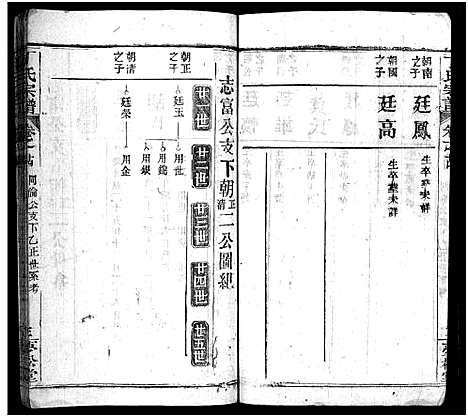 朝南之子
廷鳳
生卒葬未詳
朝國之子
廷高
生卒葬未詳
志富公支下朝正清二公圖組
廿一世 廿二世 廿三世 廿四世 廿五世
朝正之子
廷玉 用世
用錦
用銀
朝清之子
廷榮 用金
丁氏宗譜
公支下乙正世系考